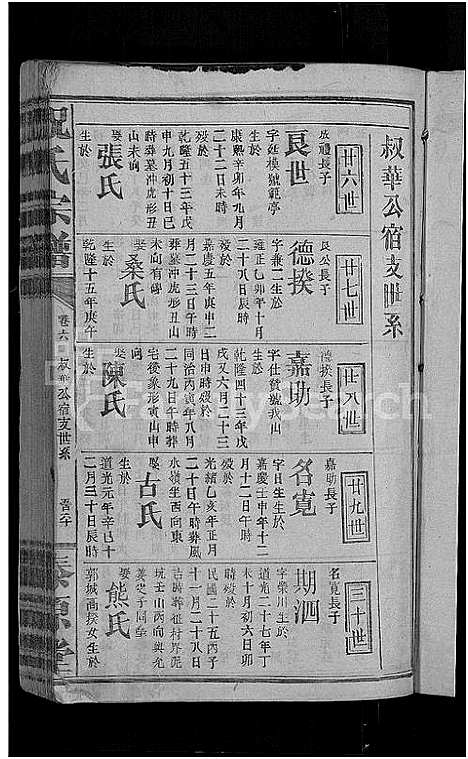 叔華公宿支世系
廿六世
啟禮長子
艮世
字延模號範亭
生於
康熙辛卯年九月
二十二日未時
歿於
乾隆五十三年戊
申九月初十日巳
時葬墓沖虎形丑
山未向
娶
張氏
生於
廿七世
艮公長子
德揆
字兼二生於
雍正乙卯年十月
二十八日辰時
歿於
嘉慶五年庚申二
月二十三日午時
葬墓沖虎形丑山
未向有碑
娶
桑氏
生於
乾隆十五年庚午
廿八世
德揆長子
嘉助
字仕贊號我山
生於
乾隆四十三年戊
戌又六月二十三
日申時歿於
同治丙寅年八月
二十九日午時葬
宅後象形寅山申
向
娶
陳氏
生於
廿九世
嘉助長子
名寬
字日生生於
嘉慶壬申年十二
月十二日午時
歿於
光緒乙亥年正月
二十日午時葬風
水嶺坐西向東
娶
古氏
生於
道光元年辛巳十
二月三十日辰時
三十世
名寬長子
期泗
字榮川生於
道光二十七年丁
未十月初六日卯
時歿於
民國二十五年丙子
十一月二十八日
吉時葬祖村界泥
坑壬山丙向與允
姜芝子同塋
娶
熊氏
郭城高揆女生於
祝氏宗譜
卷六
叔華公宿支世系